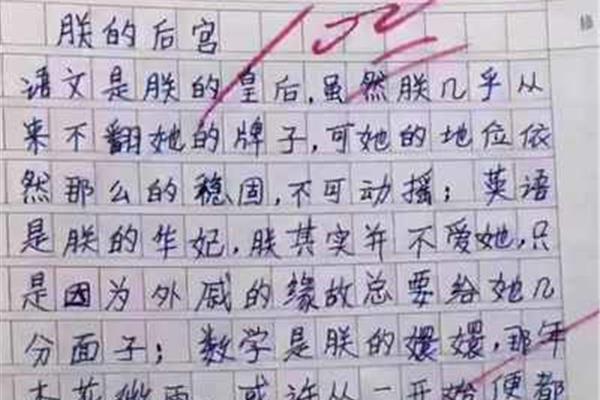 朕的后宫
语文是朕的皇后，虽然朕几乎从
来不翻她的牌子，可她的地位依
然那么的稳固，不可动摇；英语
是朕的华妃，朕其实并不爱她，只
是因为外戚的缘故总要给她几
分面子；数学是朕的嬛嬛，那年
杏花微雨，或许从一开始便都